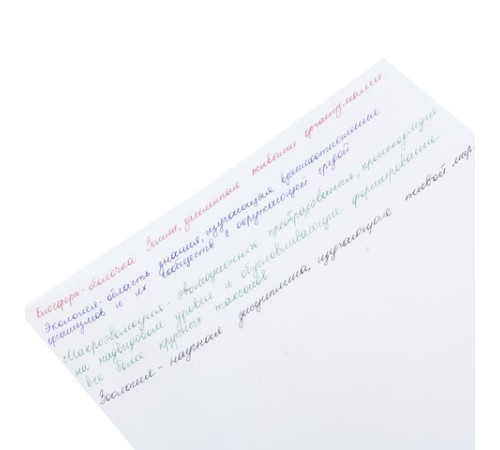 Биосфера - оболочка Земли, заселенная живыми организмами.
Экология - область знания, изучающая взаимоотношения
организмов и их сообществ с окружающей средой
Макроэволюция - эволюционных преобразования, происходящие
на надвидовом уровне и обусловливающие формирование
все более крупных таксонов
Зоология - научная дисциплина, изучающая живой мир